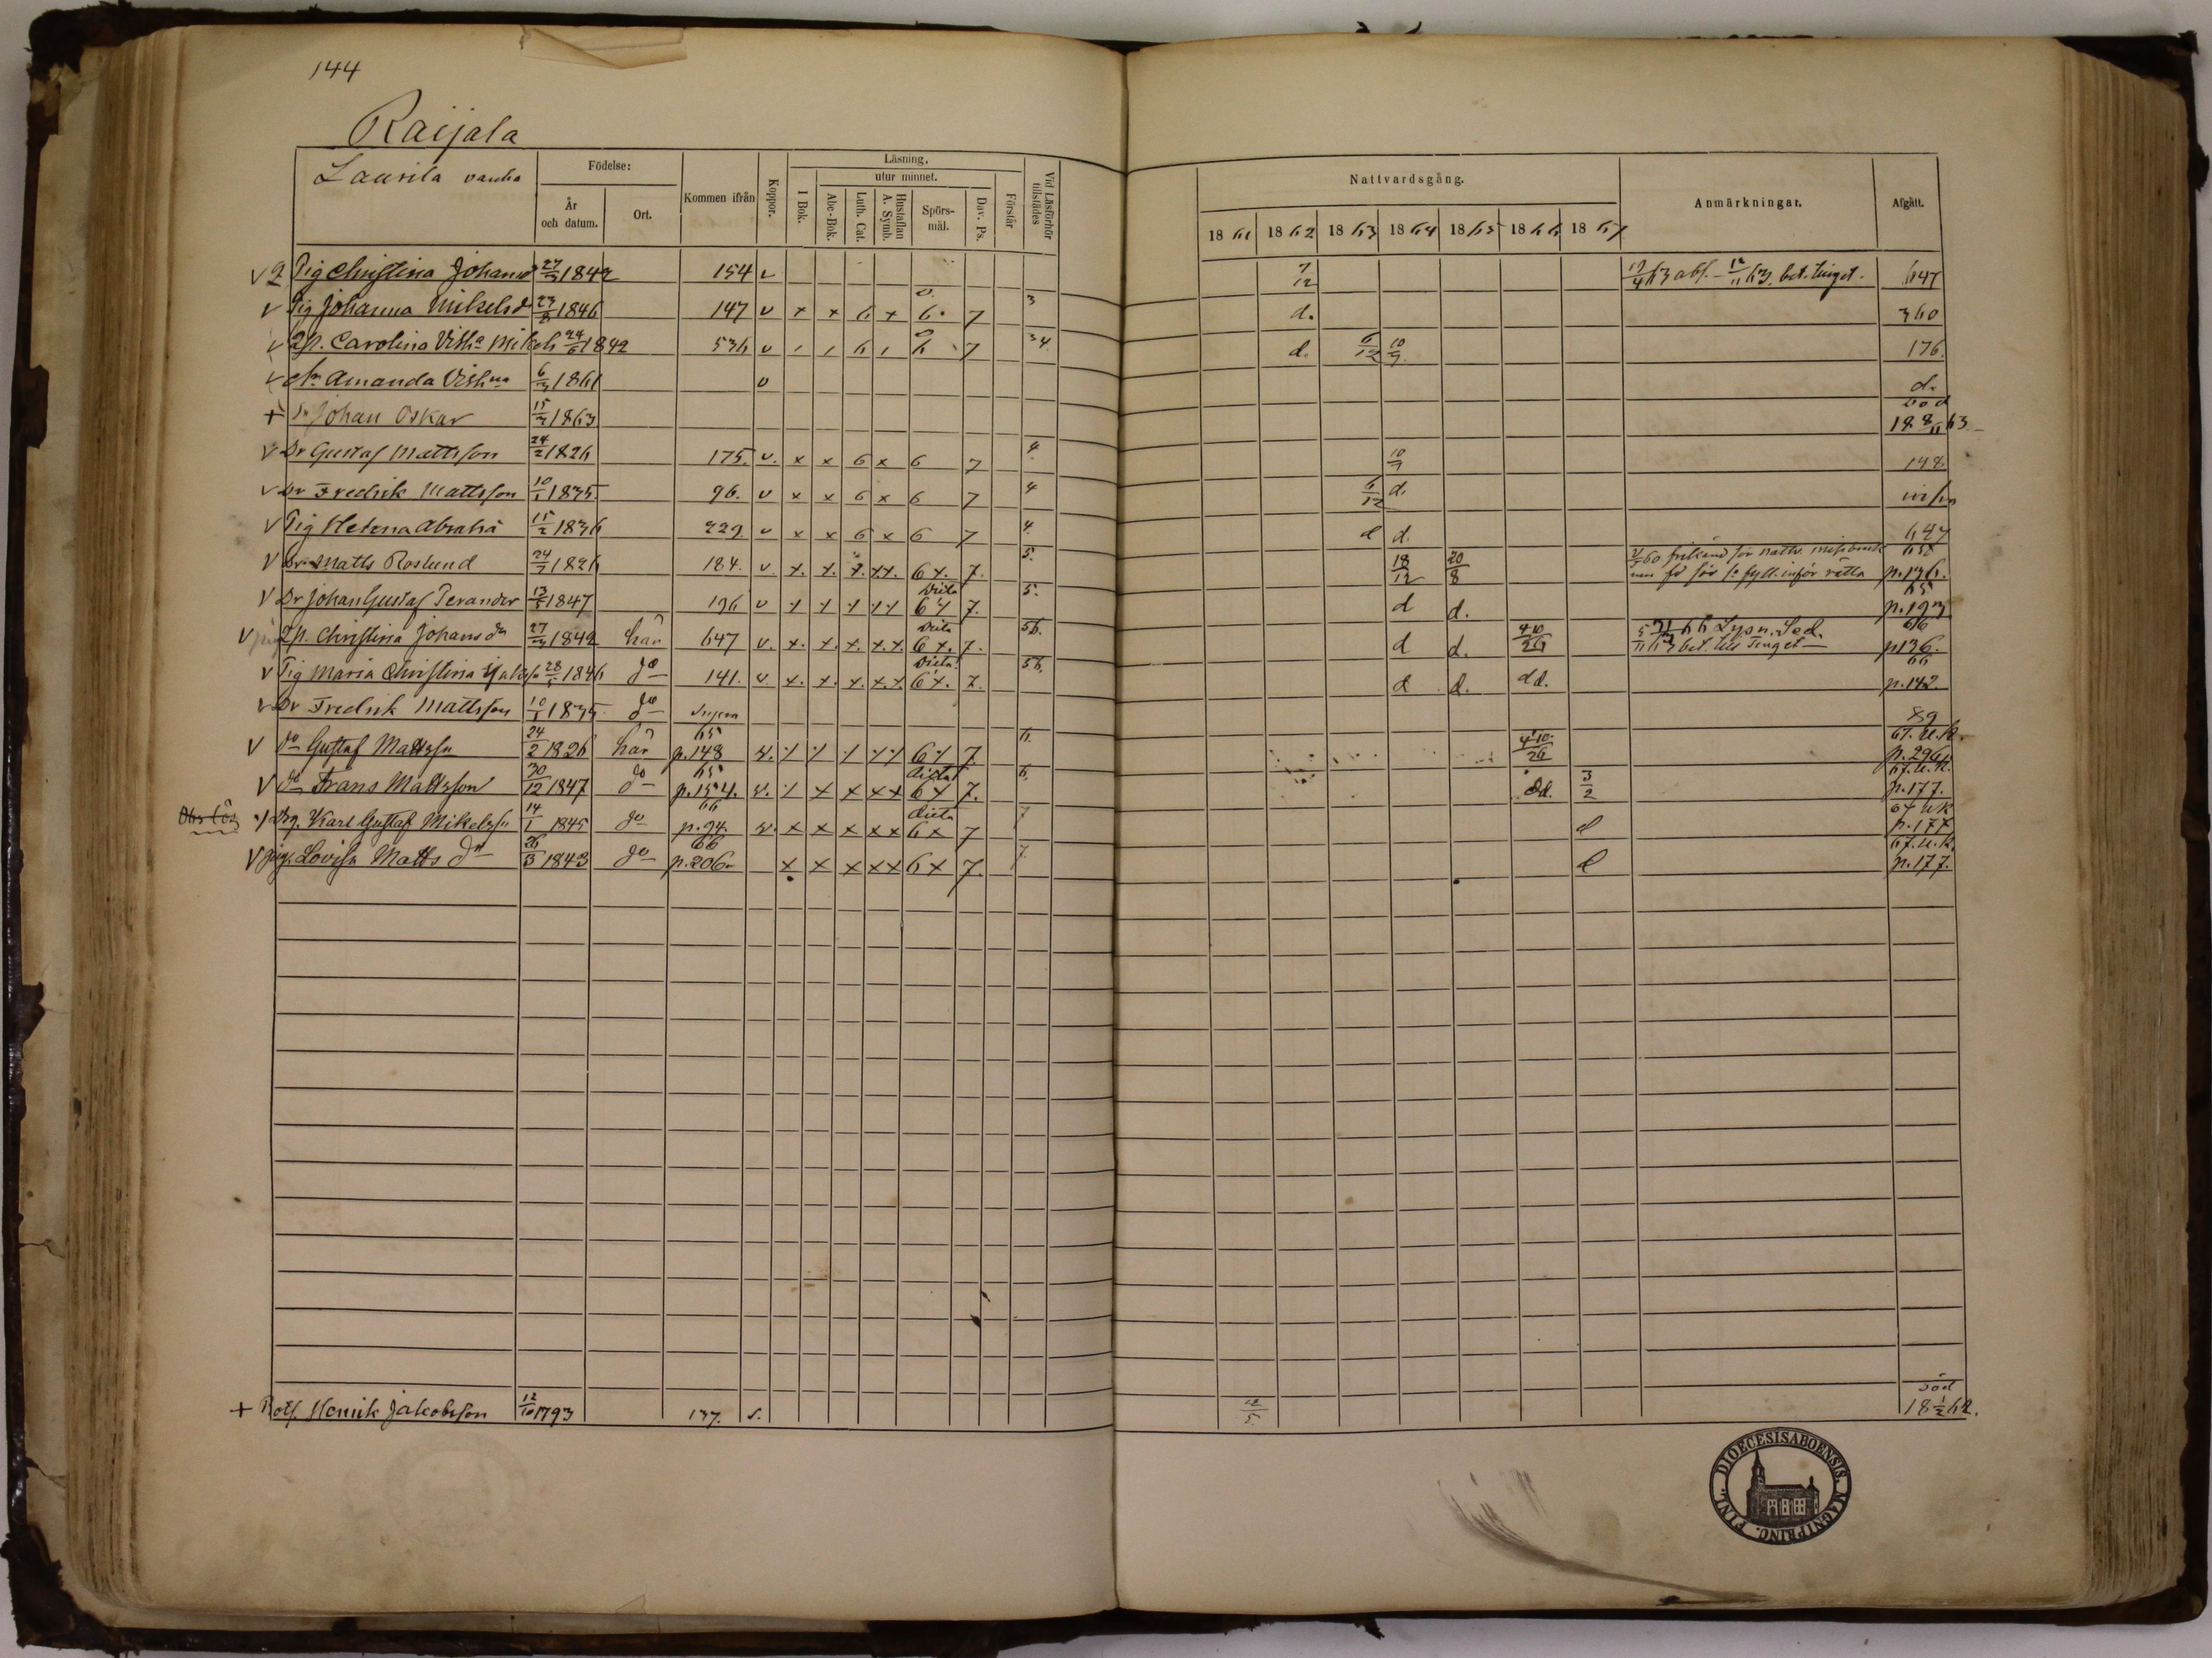 144
Raijala
Laurila vanha
Födelse:
År och datum.
Ort.
Kommen ifrån
Koppor.
Läsning,
utur minnet.
I Bok.
Abc-Bok.
Luth. Cat.
Hustaflan A. Symb.
Spörsmål.
Dav. Ps.
Förstår
Vid Läsförhör tillstädes
Nattvardsgång.
18 61 18 62 18 63 18 64 18 65 18 66 18 67
Anmärkningar.
Afgått.
v 2 Pig Christina Johansd 27/3 1842 154 v 7/12 647
v Pig Johanna Mikelsd 23/8 1846 147 v x x 6 x 6. 7 3 d. 360
v Qp. Carolina Vilh. Mikels 24/6 1842 536 v 6 6 7 34 d. 6/12 10/9 176.
v Amanda Vilh 6/3 1861 v d.
+ Johan Oskar 15/3 1863 död 18 8/11 63
v Dr Gustaf Mattsson 24/2 1826 175. v. x x 6 x 6 7 4 10/9 148.
v Dr Fredrik Mattsson 10/1 1835 96. v x x 6 x 6 7 4 6/12 d.
v Pig Helena Abrah 15/2 1836 229 v x x 6 x 6 7 4. d d. 647
v Dr Matts Roslund 24/7 1826 184. v x. x. x. x.x. 6 x. 7. 5. 18/12 20/8 65 p. 136.
v Dr Johan Gustaf Terander 13/5 1847 196 v 6 7. 5. d d. 65 p. 193
v Qp. Christina Johans dr 27/3 1842 här 647 v. x. x. x. x.x. 6 x. 7. 56. d d. 4 10/26 bet. Tinget 66 p 136.
v Pig Maria Christina 28/5 1846 do 141. v. x. x. x. x.x. 6 x. 7. 56. d d. dd. 66 p. 142.
v Dr Fredrik Mattsson 10/1 1835 do 89
v do Gustaf Mattss 24/2 1826 här 65 p. 148 6 7 6. 4 10/26 67. U.K. p. 296
v do Frans Mattsson 30/12 1847 do 65 p. 154. x x x x 6 x 7. 6. dd. 3/2 67. U.K. p. 177.
Drg. Karl Gustaf Mikelss 14/1 1845 do 66 p. 94. x x x x x 6 x 7 7 d 67 UK p. 177
v pig. Lovisa Matts dr 26/3 1843 do 66 p. 206. x x x x x 6 x 7. 7. d 67. U.K. p. 177.
+ Henrik Jakobsson 12/10 1793 137. s. död 18 1/2 62.
DIOECESIS ABOENSIS. MAGNI PRINC. FINL.